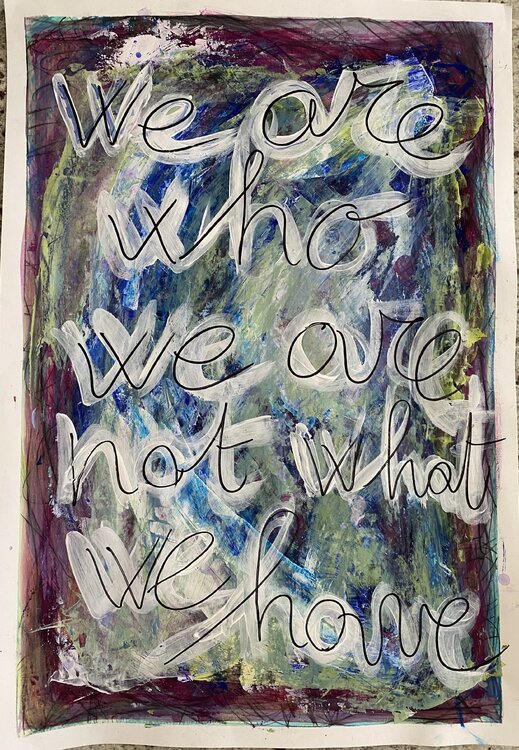 we are
who
we are
not what
we have